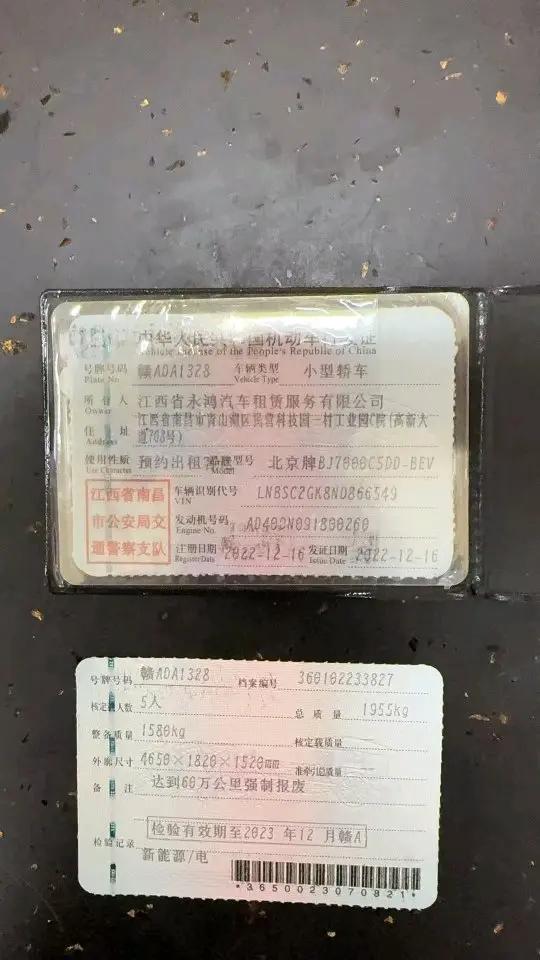 中华人民共和国机动车行驶证
Vehicle License of the People's Republic of China
号牌号码 赣ADA1328 车辆类型 小型轿车
Plate No. Vehicle Type
所有人 江西省永鸿汽车租赁服务有限公司
Owner
住址 江西省南昌市青山湖区民营科技园一村工业园C院(高新大道708号)
Address
使用性质 预约出租客运 品牌型号 北京牌BJ7000C5DD-BEV
Use Character Model
江西省南昌
市公安局交
通警察支队
车辆识别代号 LNBSC2GK8ND866549
VIN
发动机号码 AD400N091800260
Engine No.
注册日期 2022-12-16 发证日期 2022-12-16
Register Date Issue Date
号牌号码 赣ADA1328 档案编号 360102233827
核定载人数 5人 总质量 1955kg
整备质量 1580kg 核定载质量
外廓尺寸 4650×1820×1520mm 准牵引总质量
备注 达到60万公里强制报废
检验有效期至2023 年12 月赣A
检验记录
新能源/电
*3650023070821*